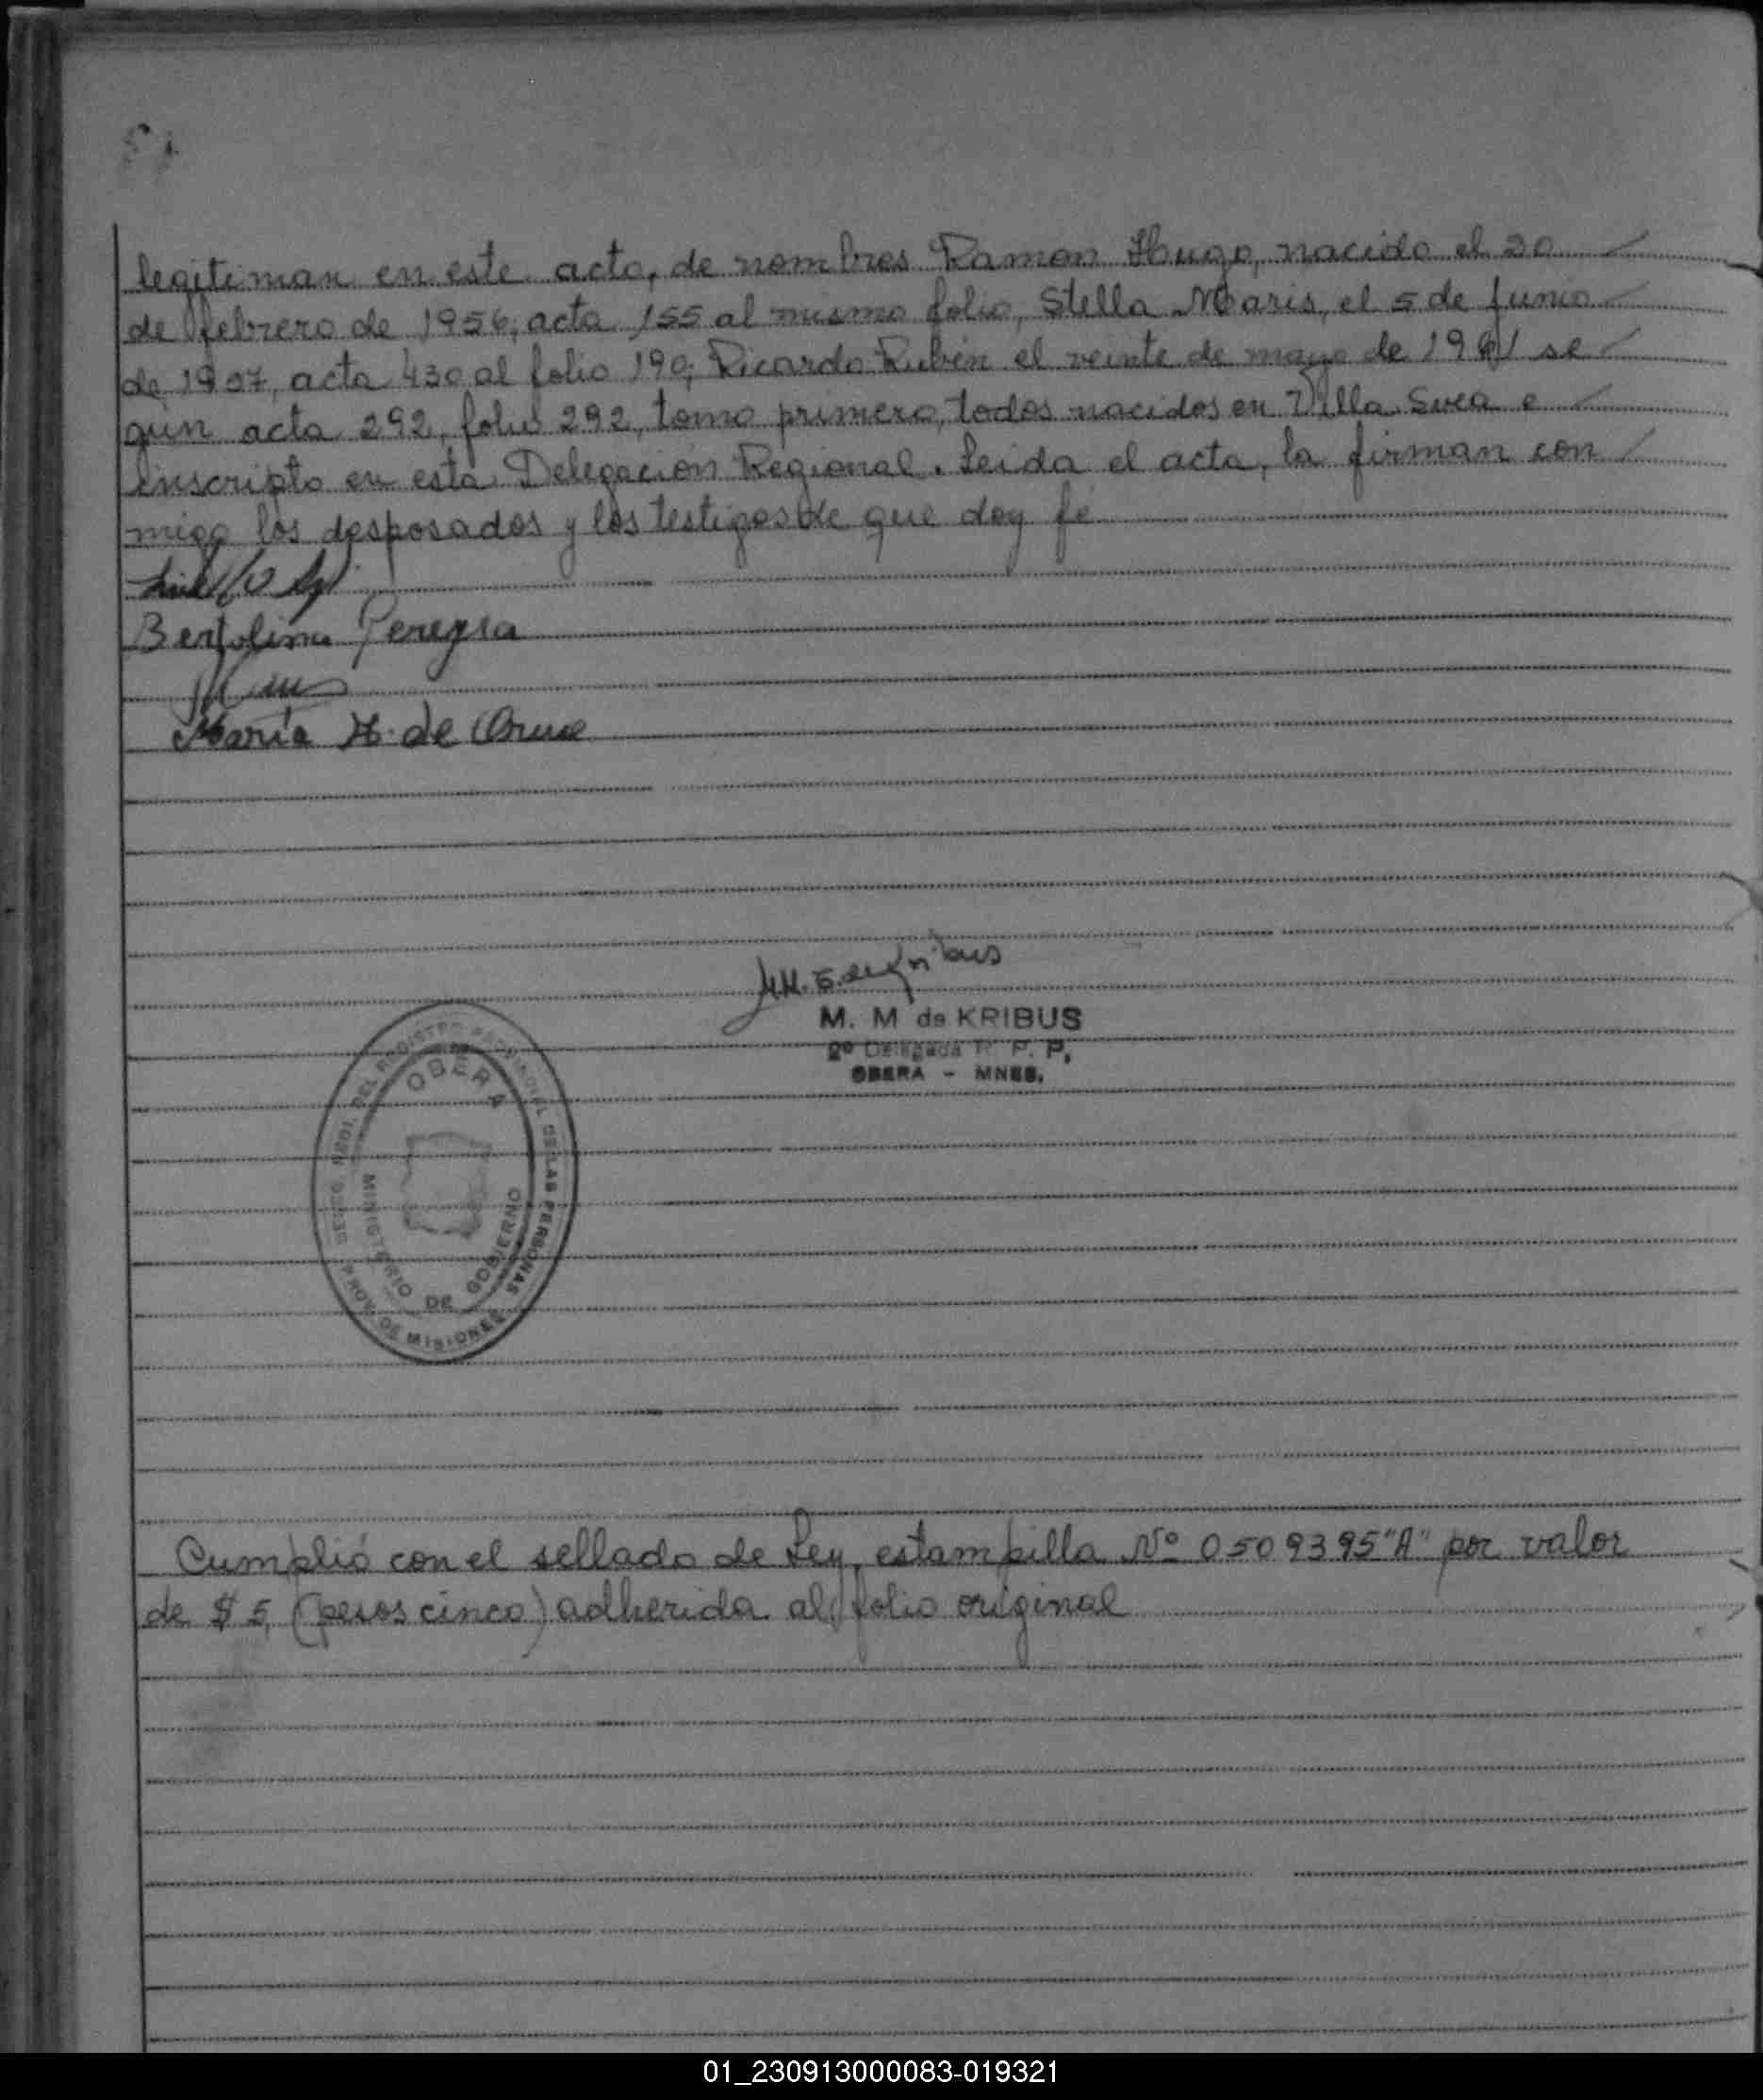 legitiman en este acto, de nombres Ramon Hugo, nacido el 20
de febrero de 1956, acta 155 al mismo folio, Stella Maris, el 5 de junio
de 1957, acta 430 al folio 190; Ricardo Rubén el veinte de mayo de 1961 se
gún acta 292, folio 292, tomo primero, todos nacidos en Villa Svea e
inscripto en esta Delegación Regional. Leida el acta, la firman con
migo los desposados y los testigos de que doy fé
Bertolina Pereyra
Maria H. de
M. M de KRIBUS
2º Delegada R. P. P.
OBERA - MNES.
DEL REGISTRO PROVINCIAL DE LAS PERSONAS
OBERA
MINISTERIO DE GOBIERNO
PROV. DE MISIONES
Cumplió con el sellado de Ley, estampilla Nº 0509395 "A" por valor
de $ 5, (pesos cinco) adherida al folio original
01_230913000083-019321